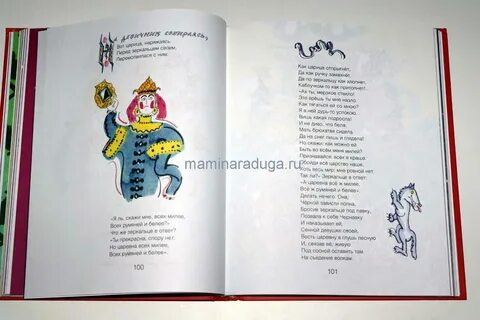 На девичник собираясь,
Вот царица, наряжаясь
Перед зеркальцем своим,
Перемолвилася с ним:
«Я ль, скажи мне, всех милее,
Всех румяней и белее?»
Что же зеркальце в ответ?
«Ты прекрасна, спору нет;
Но царевна всех милее,
Всех румяней и белее».
100
Как царица отпрыгнёт,
Да как ручку замахнёт,
Да по зеркальцу как хлопнет,
Каблучком-то как притопнет!..
«Ах ты, мерзкое стекло!
Это врёшь ты мне назло.
Как тягаться ей со мною?
Я в ней дурь-то успокою.
Вишь какая подросла!
И не диво, что бела:
Мать брюхатая сидела
Да на снег лишь и глядела!
Но скажи: как можно ей
Быть во всём меня милей?
Признавайся: всех я краше.
Обойди всё царство наше,
Хоть весь мир; мне ровной нет.
Так ли?» Зеркальце в ответ:
«А царевна всё ж милее,
Всё ж румяней и белее».
Делать нечего. Она,
Чёрной зависти полна,
Бросив зеркальце под лавку,
Позвала к себе Чернавку
И наказывает ей,
Сенной девушке своей,
Весть царевну в глушь лесную
И, связав её, живую
Под сосной оставить там
На съедение волкам.
101
maminaraduga.ru